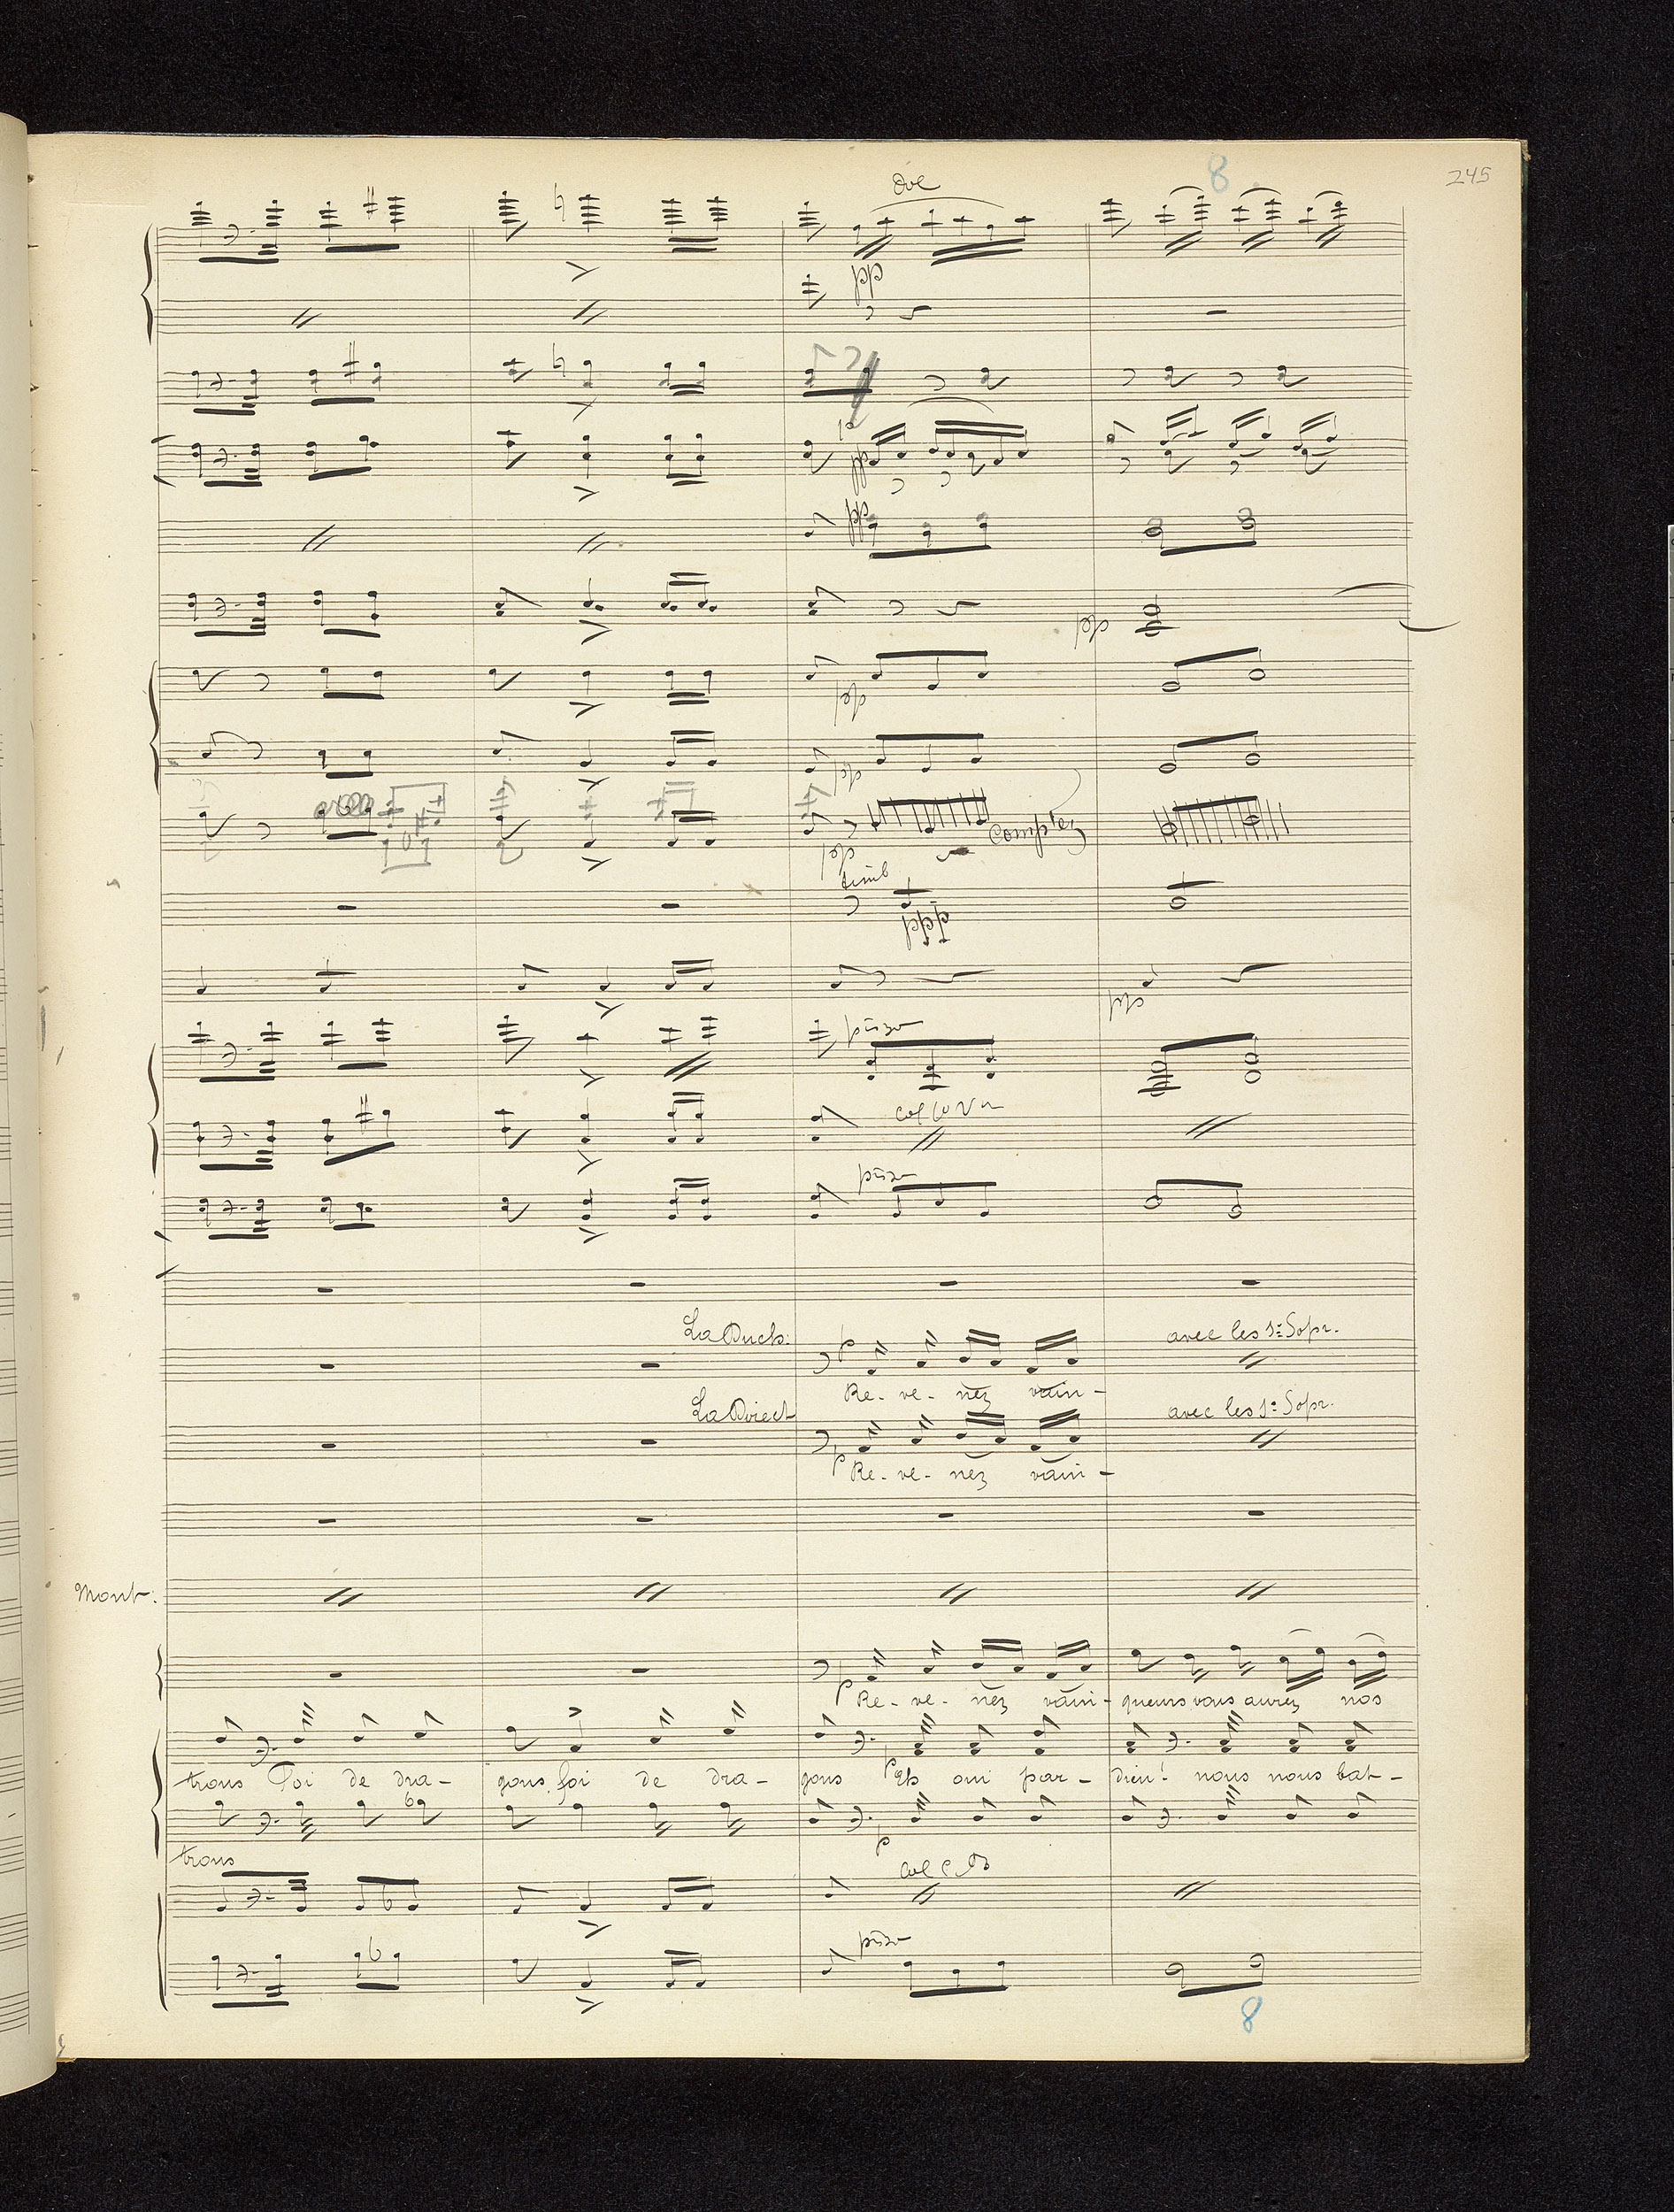 245
8
pp
pp
pp
Comptez
timb
ppp
pizzo
pizzo
La Duch:
p
avec les 1e Sopr.
Re - ve - nez vain -
La Direct
avec les 1e Sopr.
p Re - ve - nez vain -
Mont:
p Re - ve - nez vain - queurs vous aurez nos
trons Foi de dra - gons foi de dra - gons p Eh oui par - dieu! nous nous bat -
p
trons
pizzo
8